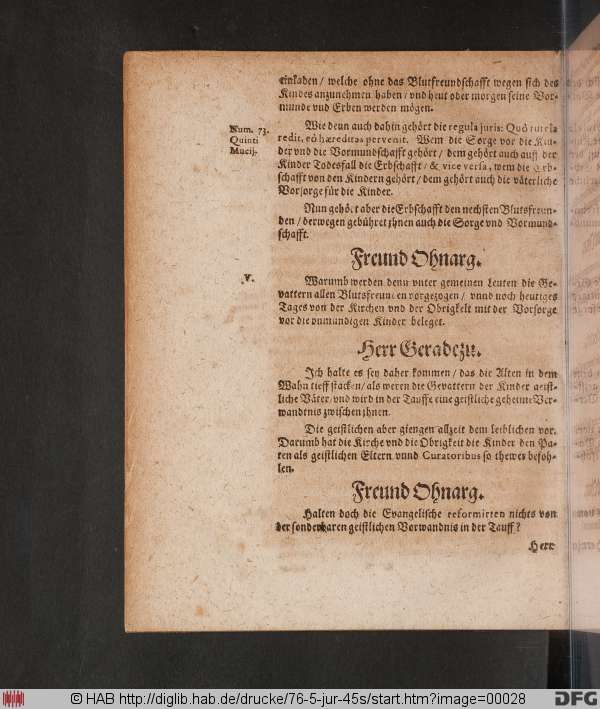 einladen / welche ohne das Blutfreundschafft wegen sich des
Kindes anzunehmen haben / vnd heut oder morgen seine Vor-
munde vnd Erben werden mögen.
Num. 73.
Quinti
Mucij.
Wie denn auch dahin gehört die regula juris: Quò tutela
redit, eò hæreditas pervenit. Wem die Sorge vor die Kin-
der vnd die Vormundschafft gehört / dem gehört auch auff der
Kinder Todesfall die Erbschafft / & vice versa, wem die Erb-
schafft von den Kindern gehört / dem gehört auch die väterliche
Vorsorge für die Kinder.
Nun gehört aber die Erbschafft den nechsten Blutsfreun-
den / derwegen gebühret jhnen auch die Sorge vnd Vormund-
schafft.
Freund Ohnarg.
V.
Warumb werden denn vnter gemeinen Leuten die Ge-
vattern allen Blutsfreunden vorgezogen / vnnd noch heutiges
Tages von der Kirchen vnd der Obrigkeit mit der Vorsorge
vor die vnmündigen Kinder beleget.
Herr Geradezu.
Ich halte es sey daher kommen / das die Alten in dem
Wahn tieff stacken / als weren die Gevattern der Kinder geist-
liche Väter / vnd wird in der Tauffe eine geistliche geheime Ver-
wandtnis zwischen jhnen.
Die geistlichen aber giengen allzeit dem leiblichen vor.
Darumb hat die Kirche vnd die Obrigkeit die Kinder den Pa-
ten als geistlichen Eltern vnnd Curatoribus so thewer befoh-
len.
Freund Ohnarg.
Halten doch die Evangelische reformirten nichts von
der sonderbaren geistlichen Vorwandnis in der Tauff?
Herr
© HAB http://diglib.hab.de/drucke/76-5-jur-45s/start.htm?image=00028
DFG